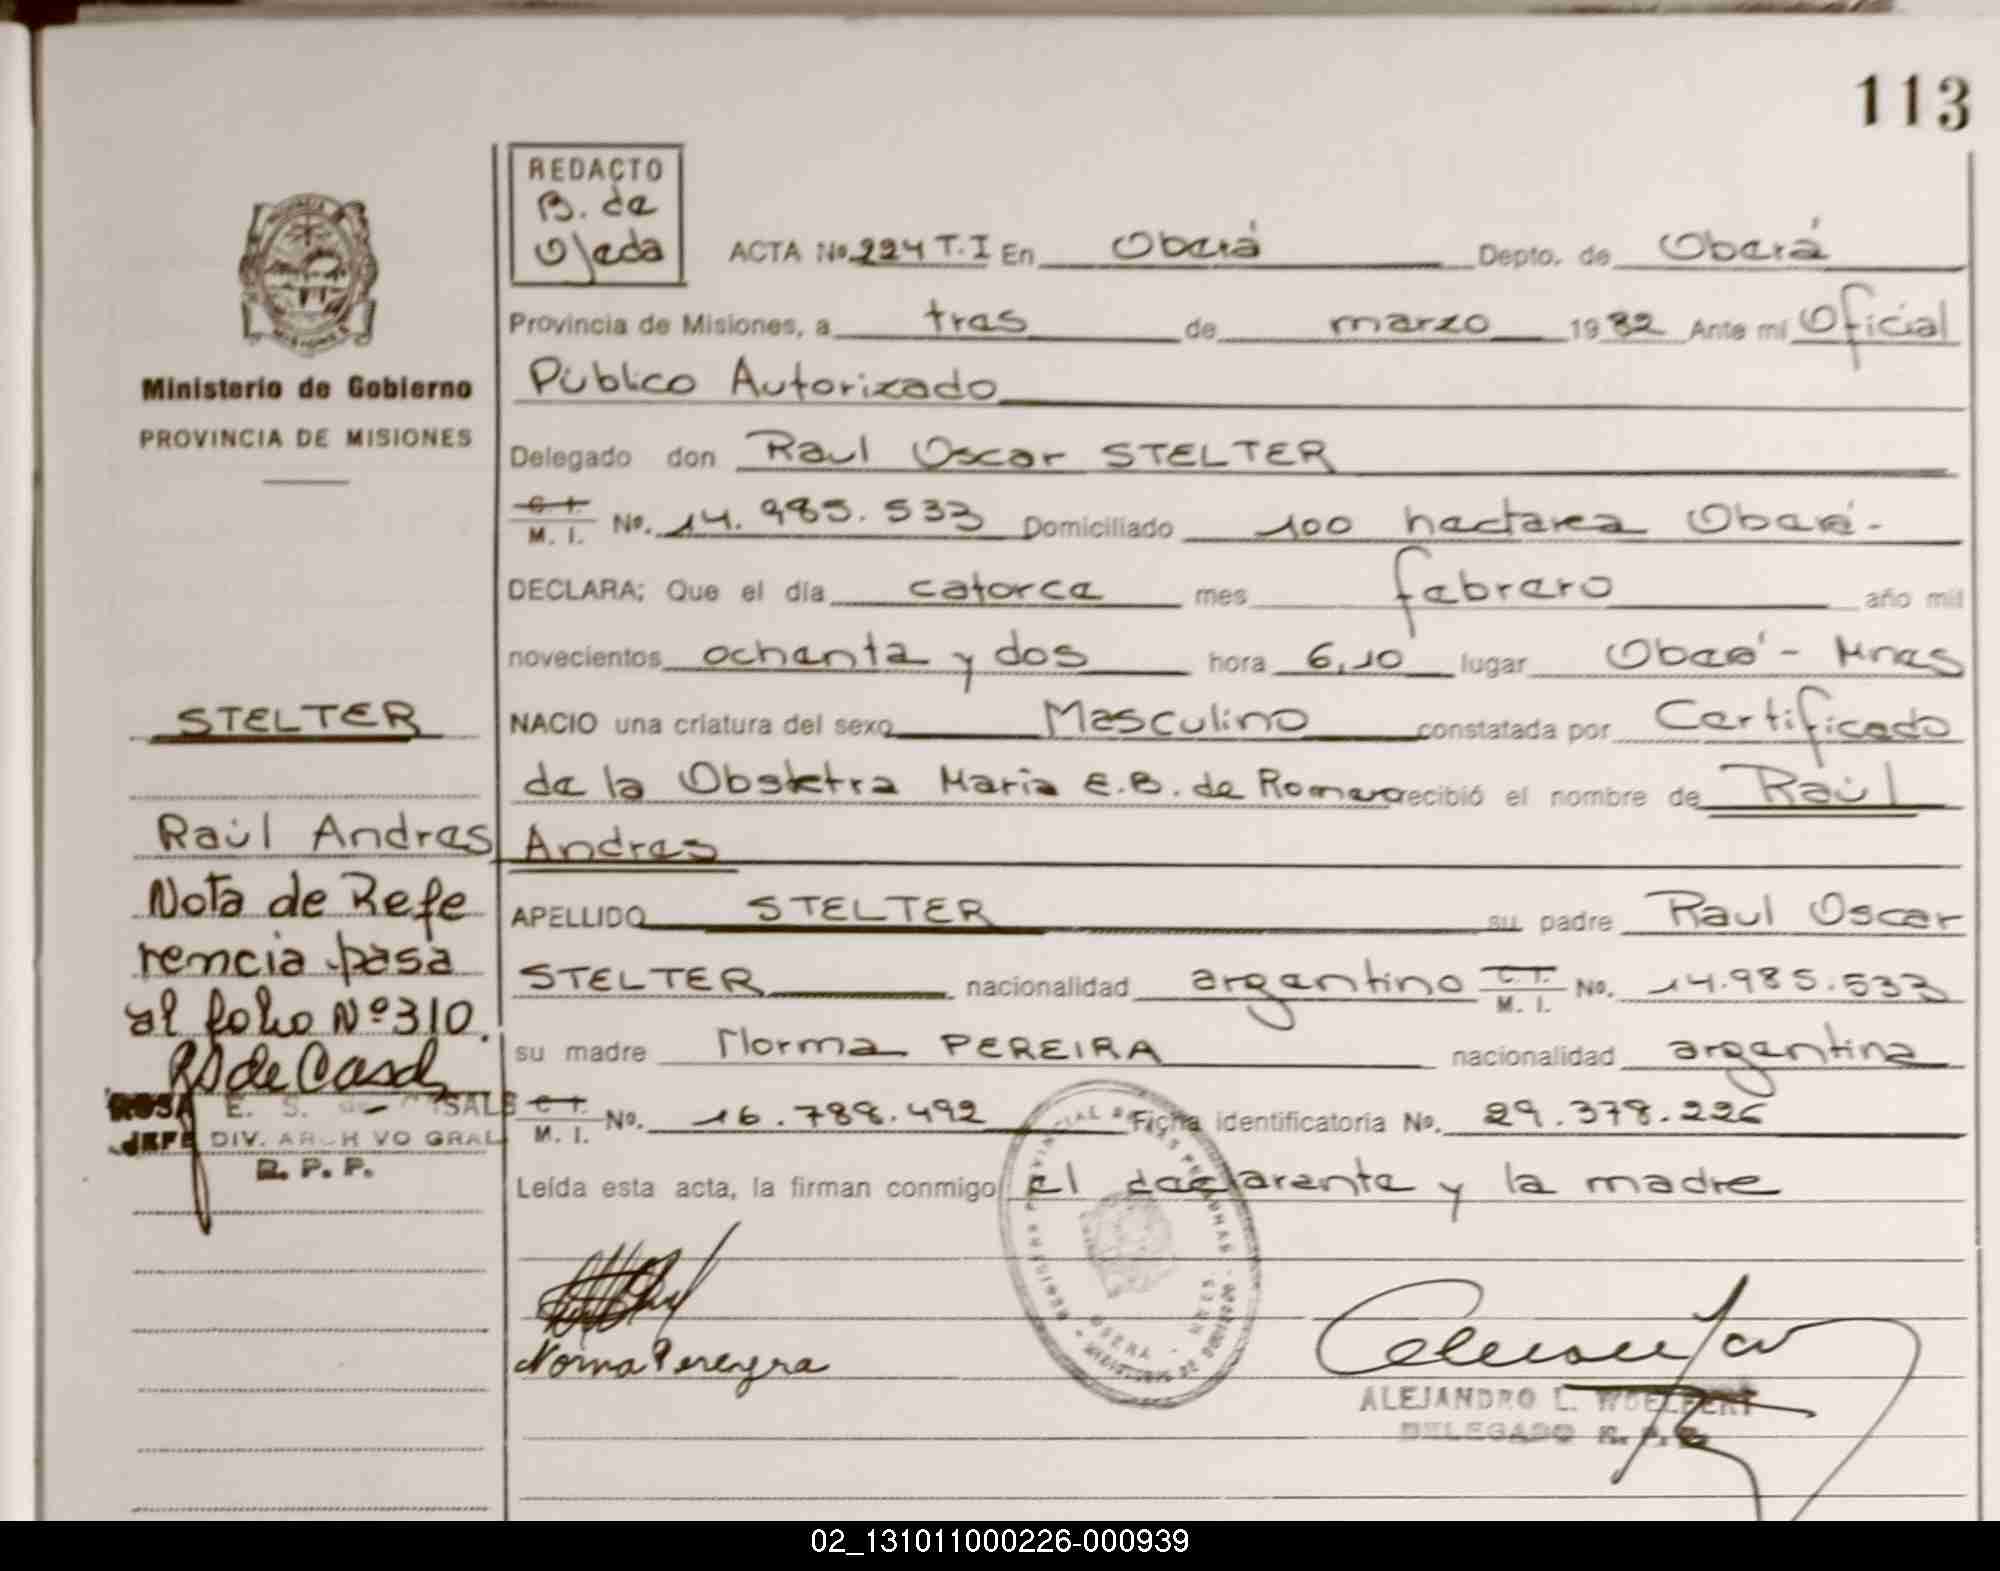 113
REDACTO
B. de
Ojeda
ACTA No. 224 T.I En Oberá Depto. de Oberá
Provincia de Misiones, a tres de marzo 1982 Ante mi Oficial
Público Autorizado
Ministerio de Gobierno
PROVINCIA DE MISIONES
Delegado don Raul Oscar STELTER
C. I.
M. I. No. 14.985.533 Domiciliado 100 hectarea Oberá-
DECLARA; Que el día catorce mes febrero año mil
novecientos ochenta y dos hora 6,10 lugar Oberá - Mnes
NACIO una criatura del sexo Masculino constatada por Certificado
de la Obstetra Maria E.B. de Romero recibió el nombre de Raúl
Andres
APELLIDO STELTER su padre Raul Oscar
STELTER nacionalidad argentino C. I. M. I. No. 14.985.533
su madre Norma PEREIRA nacionalidad argentina
C. I.
M. I. No. 16.788.492 Ficha identificatoria No. 29.378.226
Leída esta acta, la firman conmigo el declarante y la madre
STELTER
Raúl Andres
Nota de Refe
rencia pasa
al folio Nº 310.
ROSA E. S. de
JEFE DIV. ARCHIVO GRAL
R. P. P.
Norma Pereyra
ALEJANDRO L. WOELFERT
DELEGADO R. P. P.
02_131011000226-000939